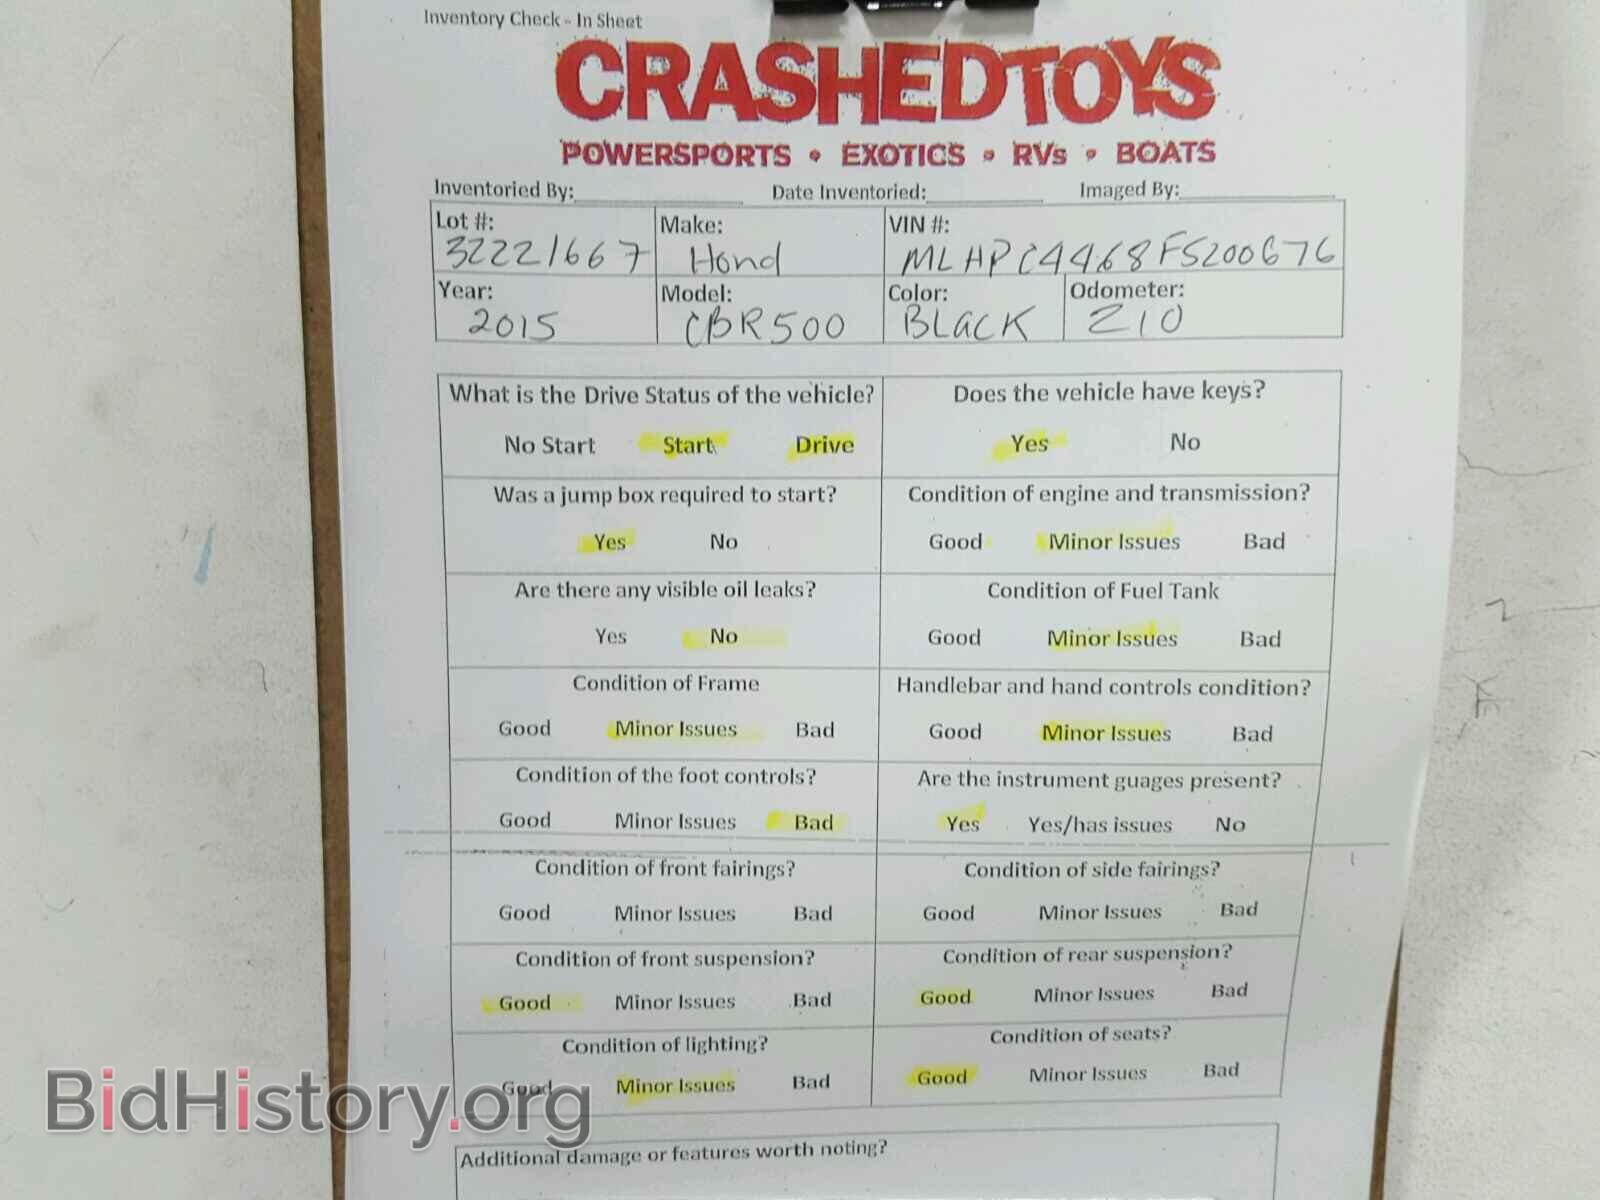 Inventory Check - In Sheet
CRASHEDTOYS
POWERSPORTS • EXOTICS • RVs • BOATS
Inventoried By: Date Inventoried: Imaged By:
Lot #: Make: VIN #:
32221667 Hond MLHPC4468F5200676
Year: Model: Color: Odometer:
2015 CBR500 BLACK 210
What is the Drive Status of the vehicle? Does the vehicle have keys?
No Start Start Drive Yes No
Was a jump box required to start? Condition of engine and transmission?
Yes No Good Minor Issues Bad
Are there any visible oil leaks? Condition of Fuel Tank
Yes No Good Minor Issues Bad
Condition of Frame Handlebar and hand controls condition?
Good Minor Issues Bad Good Minor Issues Bad
Condition of the foot controls? Are the instrument guages present?
Good Minor Issues Bad Yes Yes/has issues No
Condition of front fairings? Condition of side fairings?
Good Minor Issues Bad Good Minor Issues Bad
Condition of front suspension? Condition of rear suspension?
Good Minor Issues Bad Good Minor Issues Bad
Condition of lighting? Condition of seats?
Good Minor Issues Bad Good Minor Issues Bad
BidHistory.org
Additional damage or features worth noting?